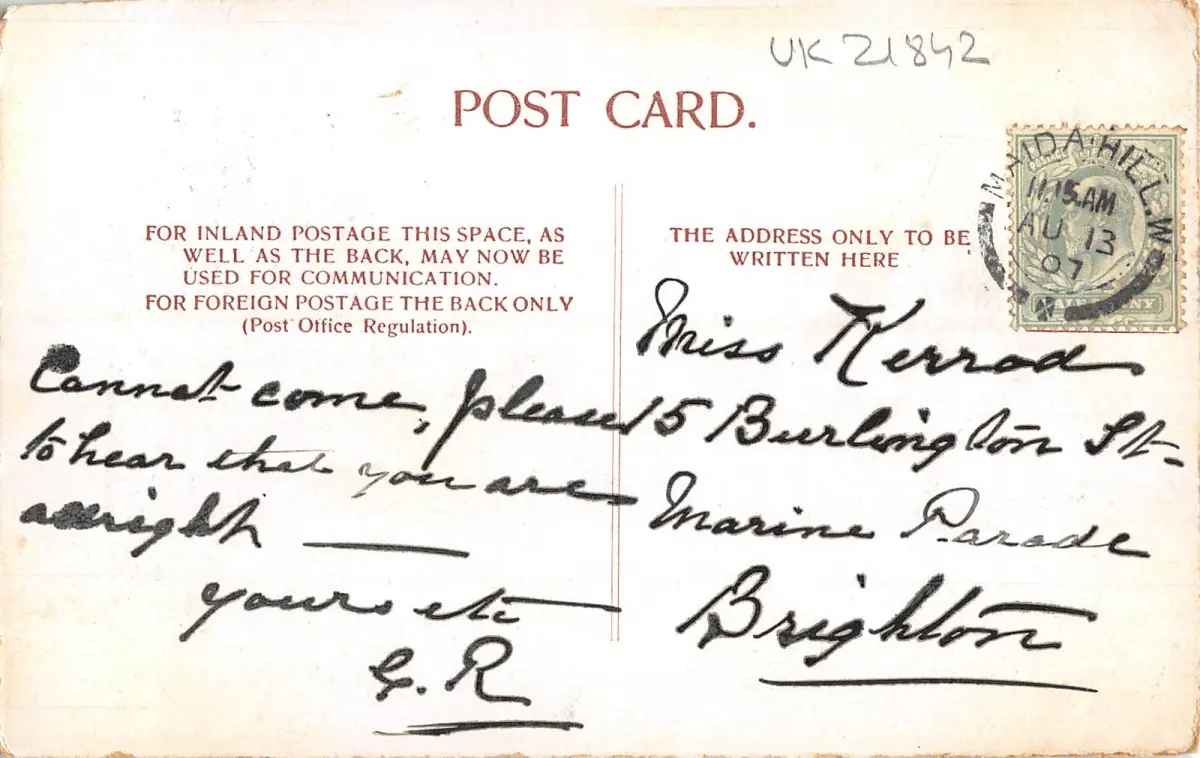 UK 21842
POST CARD.
FOR INLAND POSTAGE THIS SPACE, AS
WELL AS THE BACK, MAY NOW BE
USED FOR COMMUNICATION.
FOR FOREIGN POSTAGE THE BACK ONLY
(Post Office Regulation).
Cannot come, pleased
to hear that you are
allright
yours etc
G. R
THE ADDRESS ONLY TO BE
WRITTEN HERE
Miss Kerrod
15 Burlington St-
Marine Parade
Brighton
MAIDA HILL. W.O
11.15 AM
AU 13
07
HALFPENNY